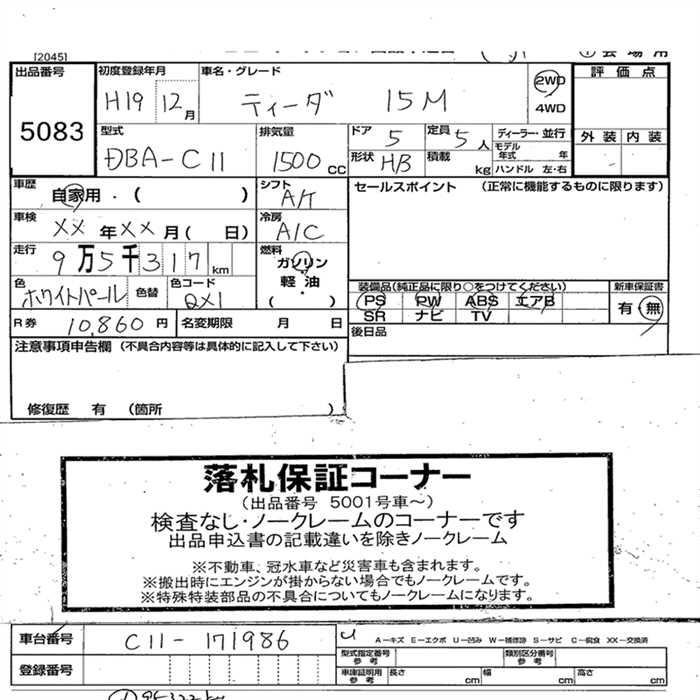 [2045]
① 会 場 用
出品番号
5083
初度登録年月
H19 12月
車名・グレード
ティーダ 15M
2WD
4WD
評 価 点
外 装 内 装
型式
DBA-C11
排気量
1500 CC
ドア
5
定員
5人
ディーラー・並行
モデル年式 年
形状
HB
積載
kg
ハンドル 左・右
車歴
自家用・( )
シフト
A/T
セールスポイント (正常に機能するものに限ります)
車検
XX 年 XX 月( 日)
冷房
A/C
走行
9万5千317km
燃料
ガソリン
軽油
・
( )
色
ホワイトパール
色替
色コード
QX1
装備品(純正品に限り○をつけてください)
PS PW ABS エアB
SR ナビ TV
新車保証書
有・無
R券 10,860 円
名変期限 月 日
後日品
注意事項申告欄 (不具合内容等は具体的に記入して下さい)
修復歴 有 (箇所 )
落札保証コーナー
(出品番号 5001号車～)
検査なし・ノークレームのコーナーです
出品申込書の記載違いを除きノークレーム
※不動車、冠水車など災害車も含まれます。
※搬出時にエンジンが掛からない場合でもノークレームです。
※特殊特装部品の不具合についてもノークレームになります。
車台番号
C11-171986
A－キズ E－エクボ U－凹み W－補修跡 S－サビ C－腐食 XX－交換済
登録番号
型式指定番号
参考
類別区分番号
参考
車庫証明用
参考
長さ cm
幅 cm
高さ cm